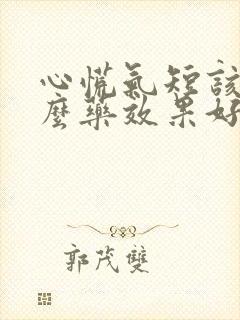 心慌氣短該
麼藥效果好
郭茂雙